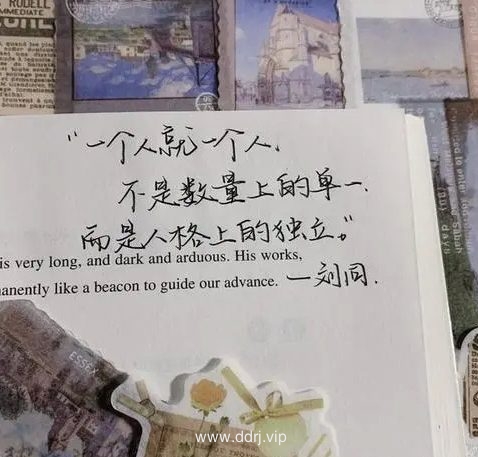 RUDELL
IMMEDIATE
“一个人就一个人.
不是数量上的单一.
而是人格上的独立。”
is very long, and dark and arduous. His works,
manently like a beacon to guide our advance. 一刘同.
ESSEX
www.ddrj.vip